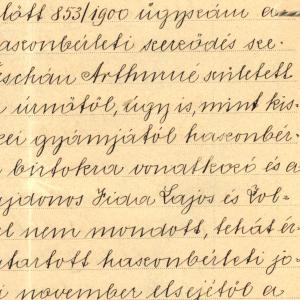 lőtt 853/1900 ügyszám a
haszonbérleti szerződés sze
Teschán Arthurné születetl
úrnőtől, úgy is, mint kis-
ei gyámjától haszonbér-
birtokra vonatkozó és a
ajdonos Zsida Lajos és Zol-
el nem mondott, tehát ér-
ytartott haszonbérleti jo-
i november elsejétől a